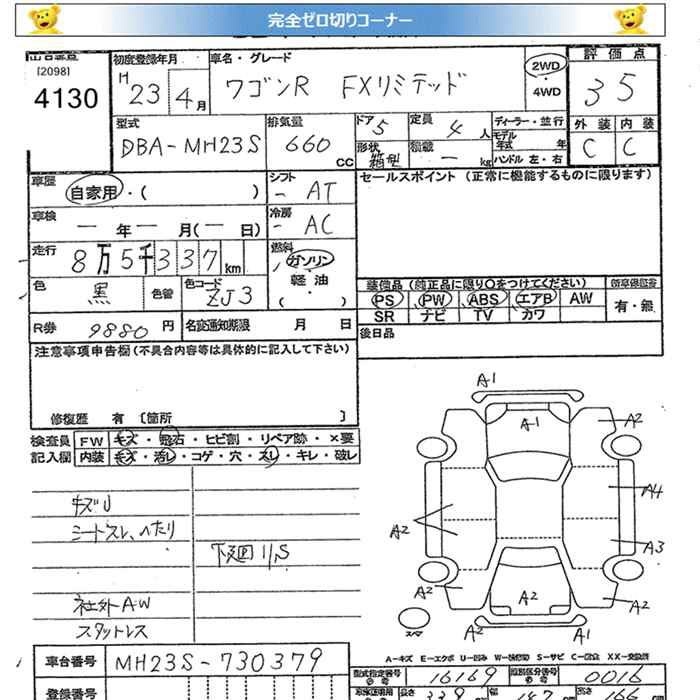 完全ゼロ切りコーナー
出品番号
[2098]
4130
初度登録年月
H 23年 4月
車名・グレード
ワゴンR FXリミテッド
2WD
・4WD
評価点
35
型式
DBA-MH23S
排気量
660 cc
ドア 5
形状 箱型
定員 4人
積載 ー kg
ディーラー・並行
モデル年式 年
ハンドル 左・右
外装 内装
C C
車歴
自家用・( )
シフト
- AT
セールスポイント (正常に機能するものに限ります)
車検
ー年ー月(ー日)
冷房
- AC
走行
8万5千337km
燃料
ガソリン
・
軽油
・
( )
色
黒
色替
色コード
ZJ3
装備品 (純正品に限り○をつけてください)
PS PW ABS エアB AW
SR ナビ TV カワ
有・無
R券 9880円
名変通知期限 月 日
後日品
注意事項申告欄 (不具合内容等は具体的に記入して下さい)
修復歴 有 [箇所 ]
検査員 FW キズ・飛石・ヒビ割・リペア跡・×要
記入欄 内装 キズ・汚レ・コゲ・穴・スレ・キレ・破レ
キズU
シートスレ、ヘたり
下廻リS
社外A・W
スタットレス
A1
A1
A2
A4
A2
A3
A2
A2
A2
A2
A1
スペア
A-キズ E-エクボ U-凹み W-補修跡 S-サビ C-腐食 XX-交換済
車台番号 MH23S-730379
型式指定番号 16169
類別区分番号 0016
登録番号
長さ 339
幅 147
高さ 166